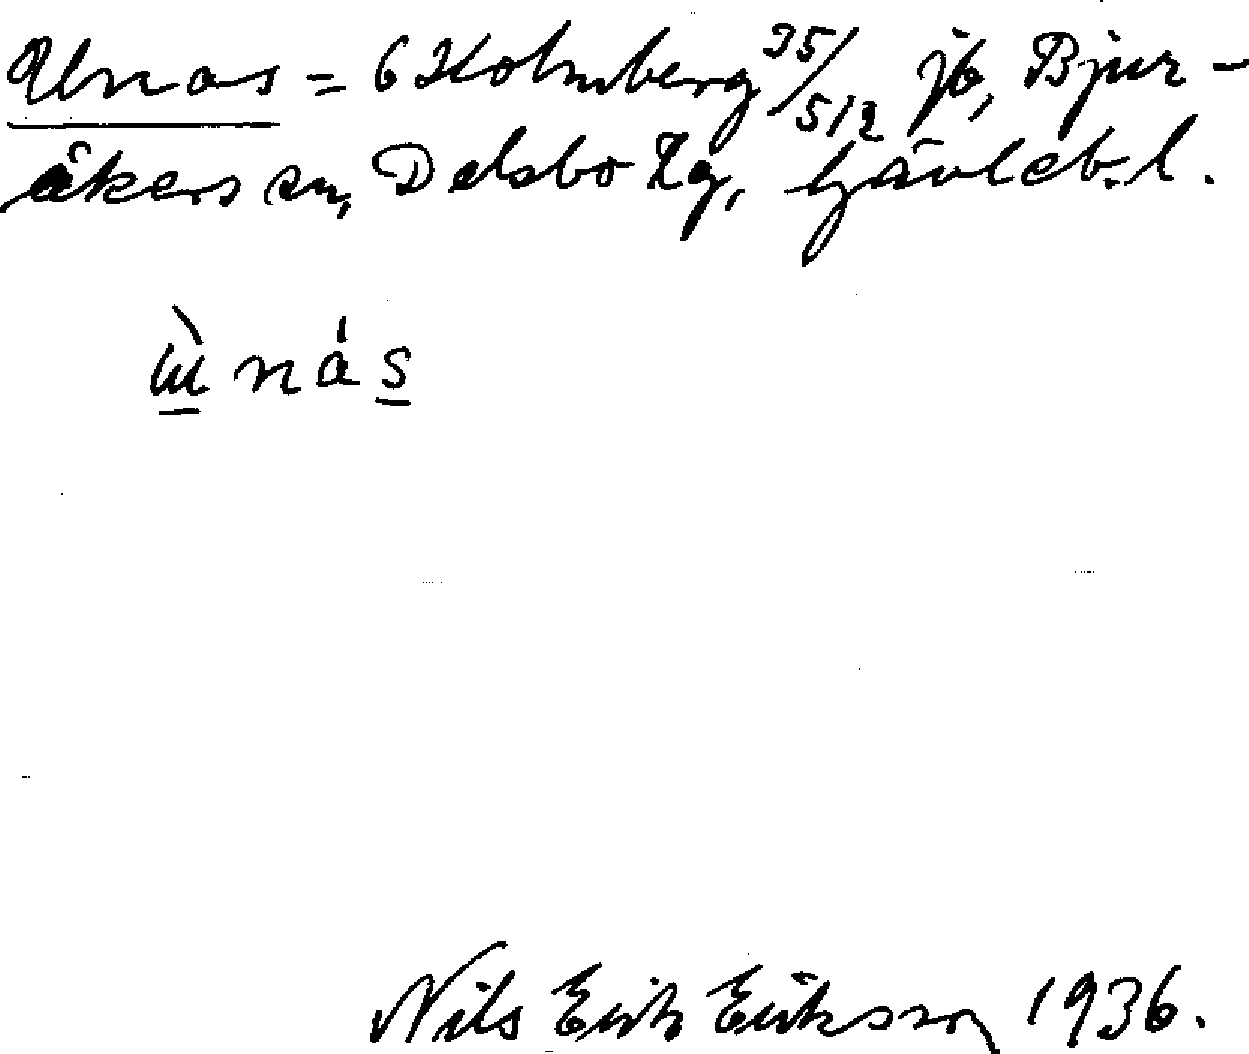 Unas = 6 Holmberg 35/512 jb, Bjur-
åkers sn, Delsbo tg, Gävleb.l.
ùnás
Nils Erik Eriksson 1936.